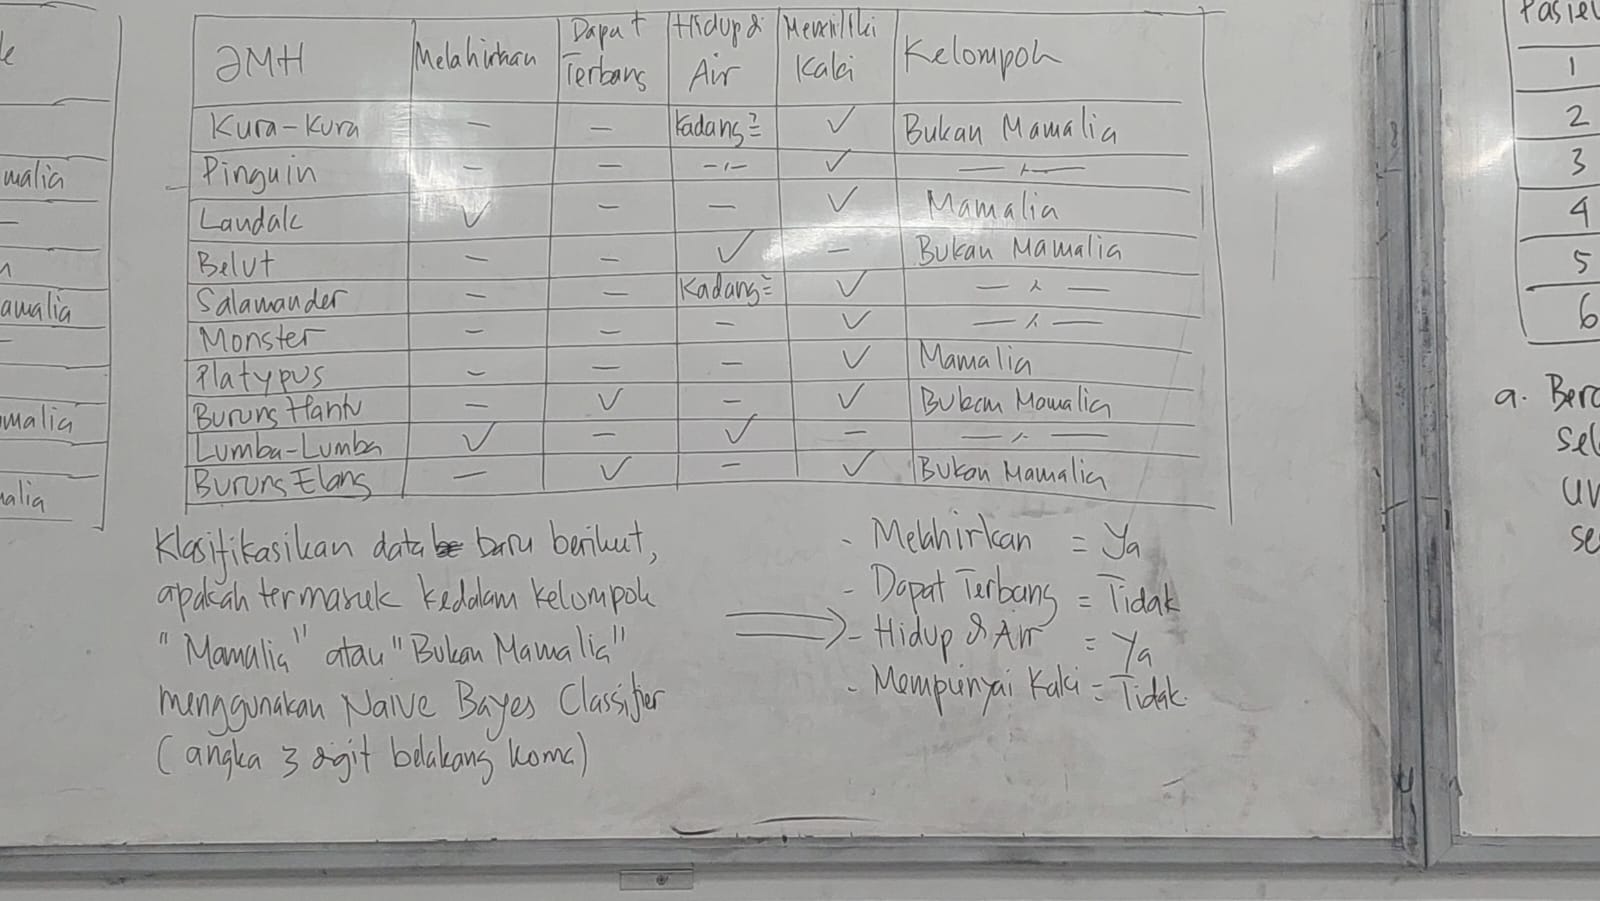 le
malia
n
amalia
malia
malia
ƏMH Melahirkan Dapat Terbang Hidup di Air Memiliki Kaki Kelompok
Kura-Kura - - Kadang² ✓ Bukan Mamalia
Pinguin - - -"- ✓ -"-
Landak ✓ - - ✓ Mamalia
Belut - - ✓ - Bukan Mamalia
Salamander - - Kadang² ✓ -"-
Monster - - - ✓ -"-
Platypus - - - ✓ Mamalia
Burung Hantu - ✓ - ✓ Bukan Mamalia
Lumba-Lumba ✓ - ✓ - -"-
Burung Elang - ✓ - ✓ Bukan Mamalia
Klasifikasikan data baru berikut,
apakah termasuk kedalam kelompok
"Mamalia" atau "Bukan Mamalia"
menggunakan Naive Bayes Classifier
(angka 3 digit belakang koma)
- Melahirkan = Ya
- Dapat Terbang = Tidak
- Hidup di Air = Ya
- Mempunyai Kaki = Tidak.
Pasien
1
2
3
4
5
6
a. Berd
sel
un
se